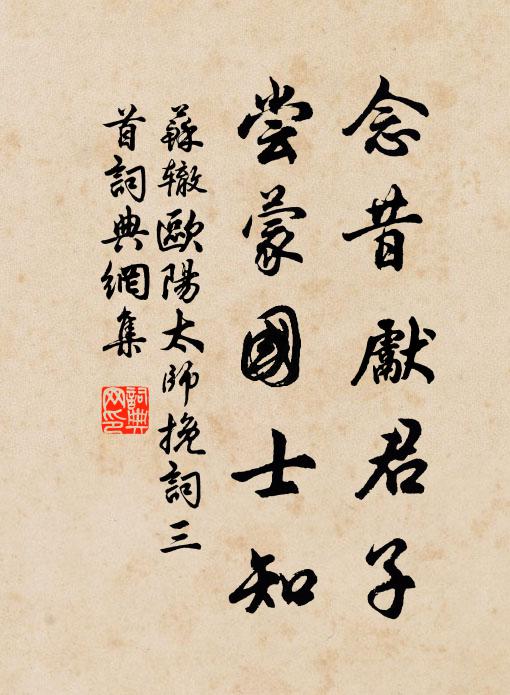 念昔獻君子
尝蒙國士知
蘇辙歐陽太師挽詞三
首詞典網集
詞典
网印